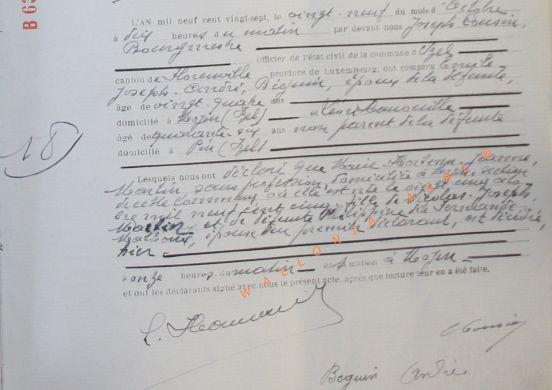 B 63
L'AN mil neuf cent vingt-sept, le vingt-neuf du mois d'Octobre
à dix heures du matin par devant nous Joseph Cousin,
Bourgmestre Officier de l'état civil de la commune d'Izel
canton de Florenville province de Luxembourg, ont comparu Emile
Joseph-André, Béguin, époux de la défunte,
âge de vingt-quatre ans
domicilié à Moyen (Izel) et
âgé de quarante-six ans non parent de la défunte
domicilié à Pin (Izel)
18)
Lesquels nous ont déclaré que Marie-Hortense-Jeanne,
Martin, sans profession, domiciliée à Moyen, section
de cette commune, où elle est née le
mil neuf cent cinq, fille de Nicolas-Joseph
Martin et de défunte Philippine
, épouse du premier déclarant, est décédée,
hier
à onze heures du matin en sa maison à Moyen
et ont les déclarants signé avec nous le présent acte, après que lecture leur en a été faite.
WALLONIA
Cousin
Beguin André